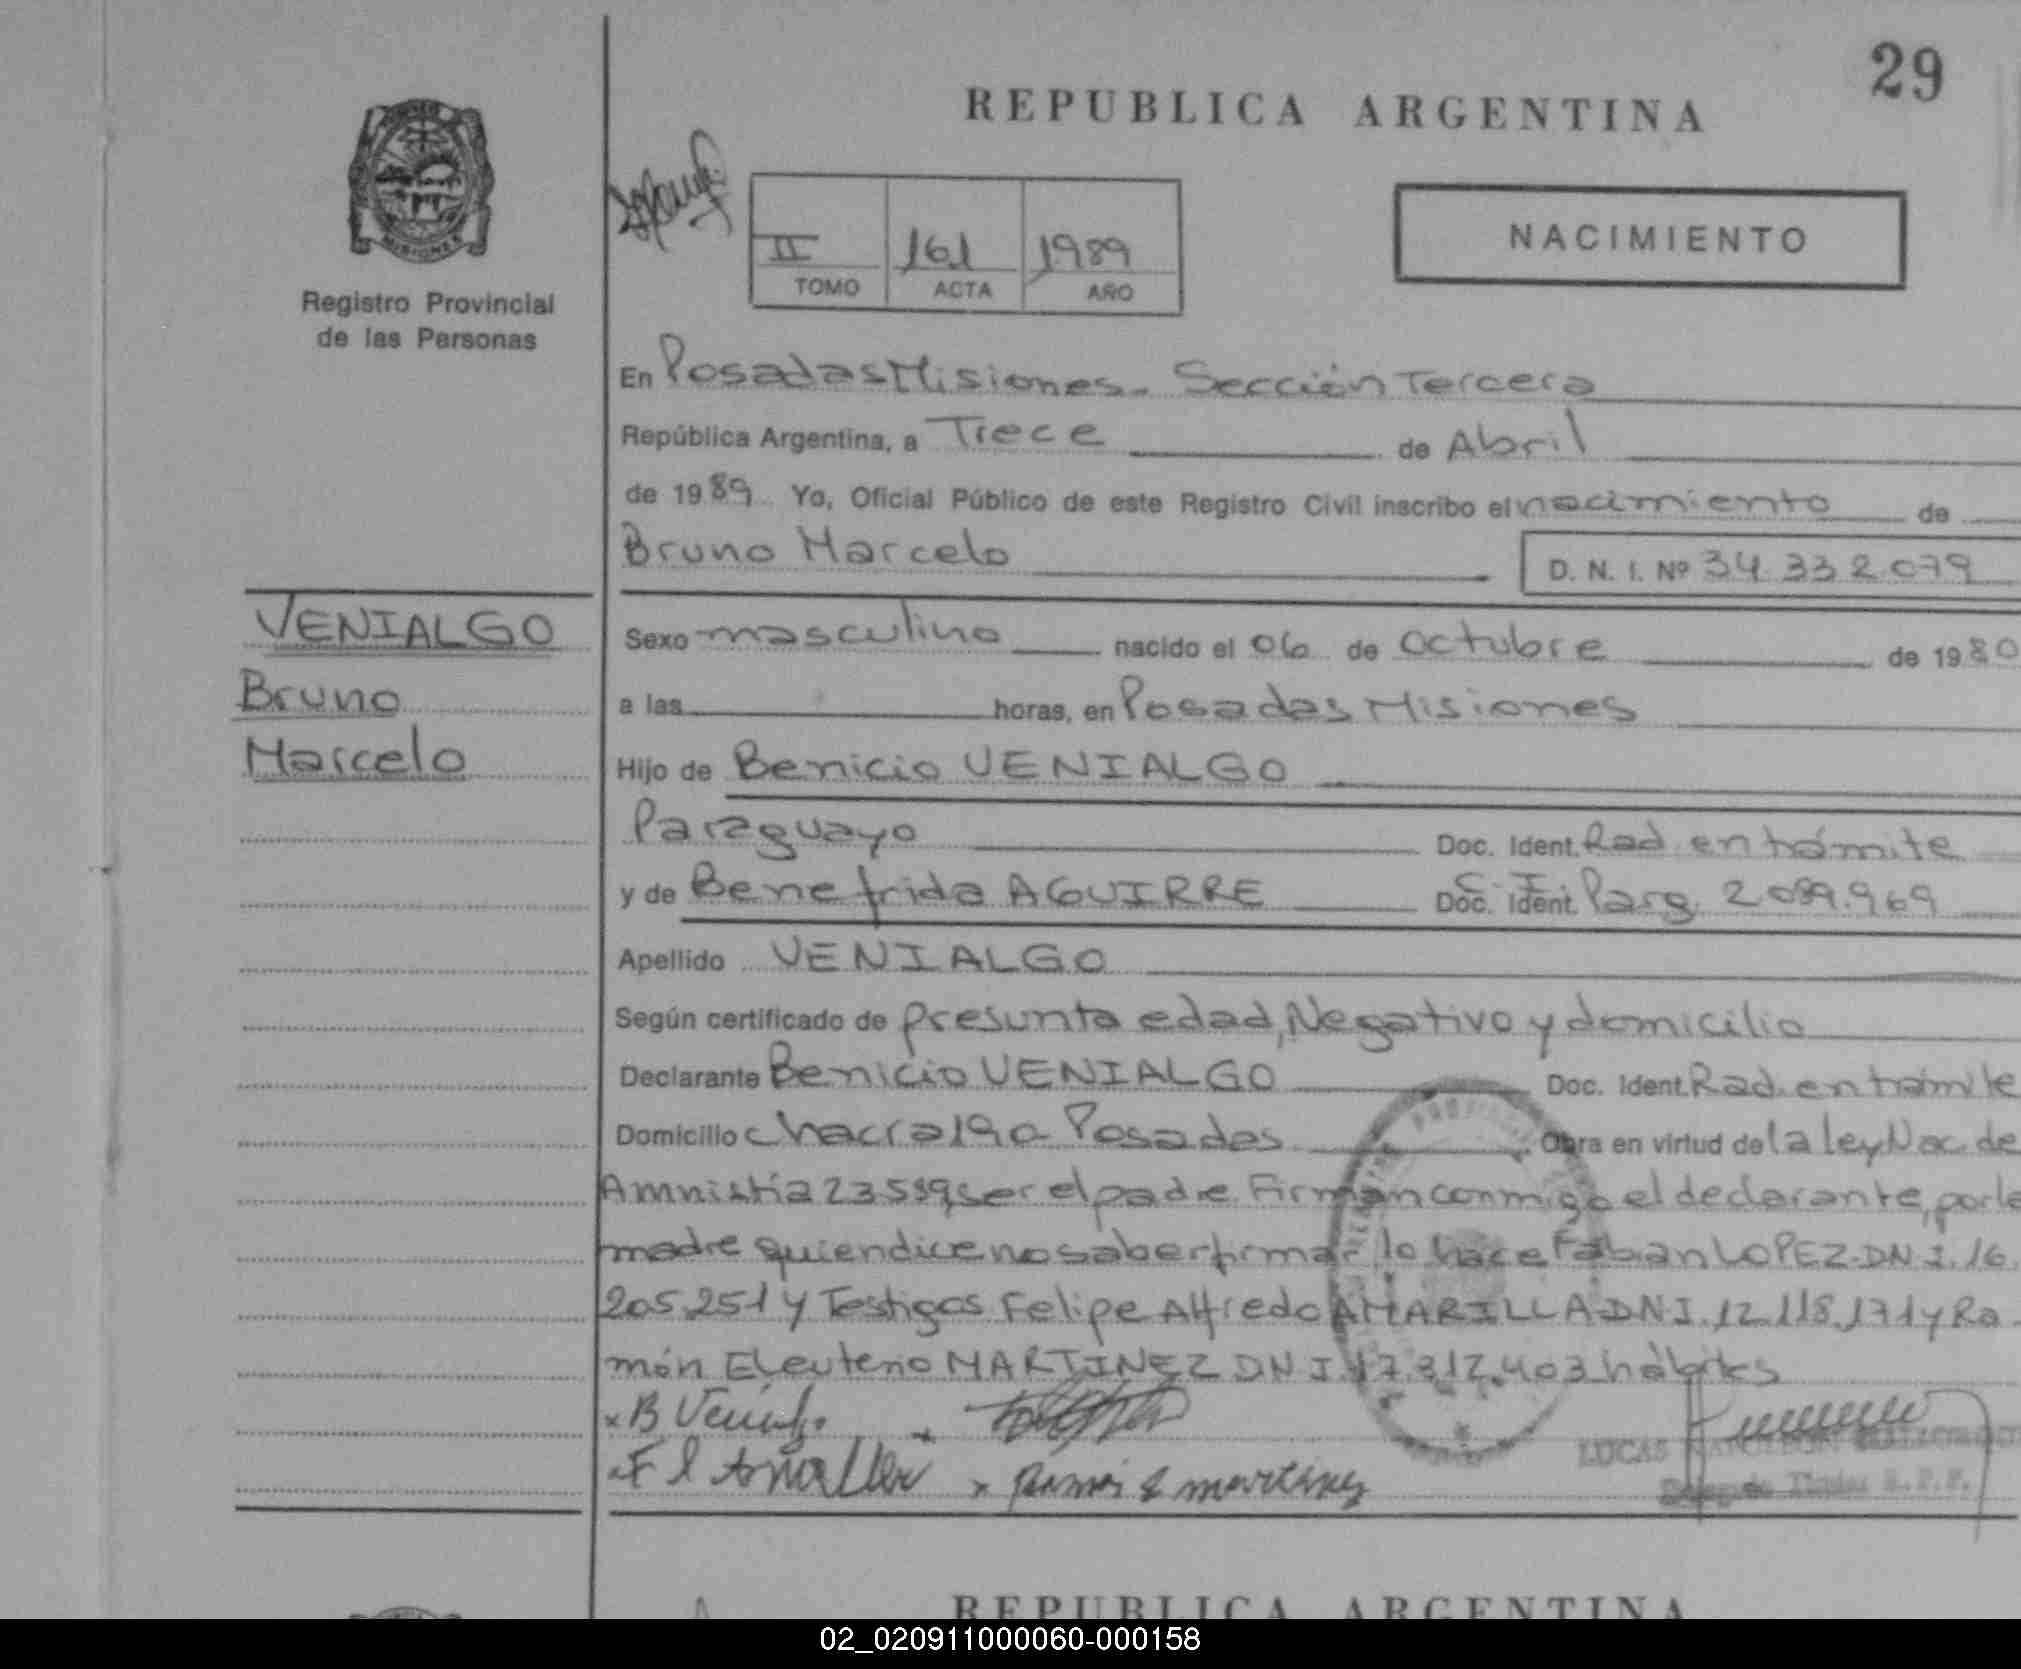 29
REPUBLICA ARGENTINA
MISIONES
Registro Provincial
de las Personas
II 161 1989
TOMO ACTA AÑO
NACIMIENTO
En Posadas Misiones. Sección Tercera
República Argentina, a Trece de Abril
de 1989 Yo, Oficial Público de este Registro Civil inscribo el nacimiento de
Bruno Marcelo D. N. I. Nº 34.332.079
VENIALGO
Bruno
Marcelo
Sexo masculino nacido el 06 de Octubre de 1980
a las horas, en Posadas Misiones
Hijo de Benicio VENIALGO
Paraguayo Doc. Ident. Rad. en trámite
y de Benefrida AGUIRRE C. I. Doc. Ident. Parg. 2.089.969
Apellido VENIALGO
Según certificado de presunta edad, Negativo y domicilio
Declarante Benicio VENIALGO Doc. Ident. Rad. en trámite
Domicilio chacra 190 Posadas Obra en virtud de la ley Nac. de
Amnistía 23.559, ser el padre. Firman conmigo el declarante, por la
madre quien dice no saber firmar lo hace Fabian LOPEZ D.N.I. 16.
205.251 y Testigos Felipe Alfredo AMARILLA D.N.I. 12.118.171 y Ra-
món Eleuterio MARTINEZ D N I. 17.312.403 hábiles
x B Venialgo
x Ramon E martinez
LUCAS NAPOLEON
Delegado Titular R.P.P.
REPUBLICA ARGENTINA
02_020911000060-000158